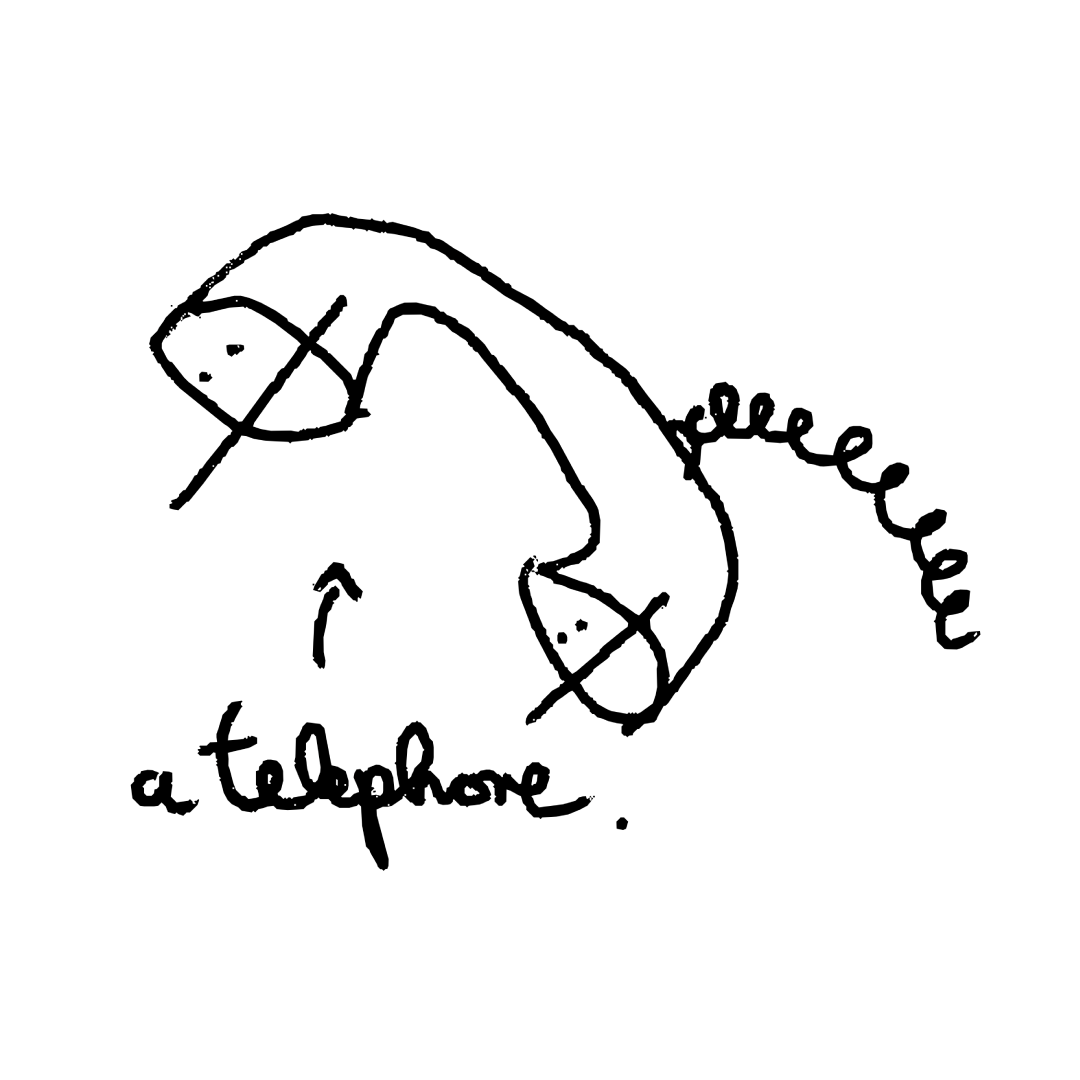 a telephone.